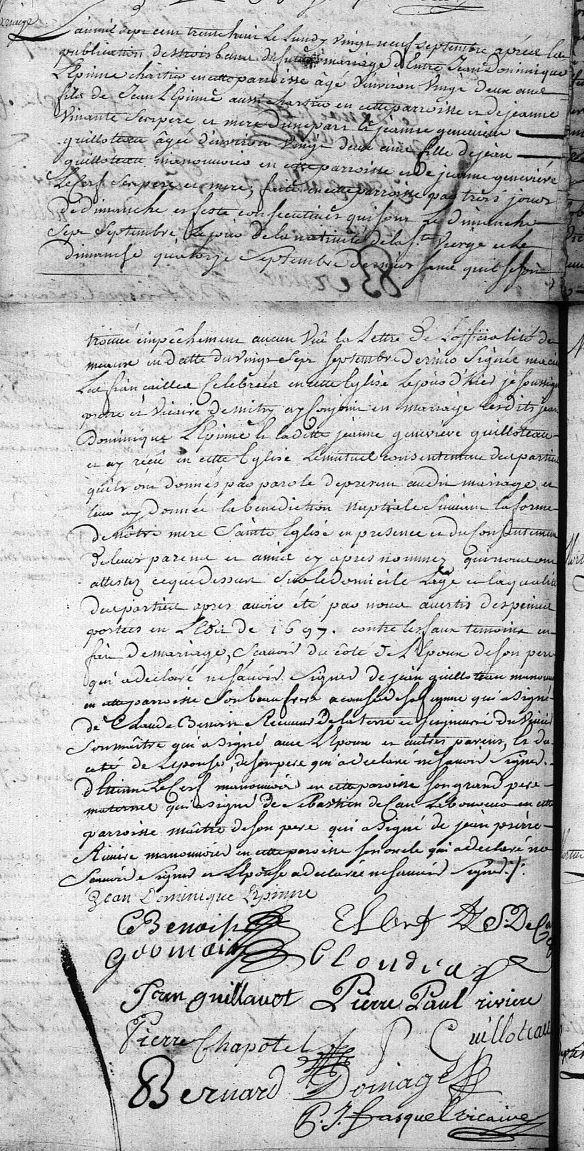 mariage
L'an mil sept cent trente huit le Lundy vingt neuf septembre après la
publication de trois bans du futur mariage d'Entre Jean Dominique
L'Epinne chartier en cette paroisse âgé d'environ vingt deux ans
fils de Jean L'Epinne aussi chartier en cette parroisse et de jeanne
ses père et mere d'une part et jeanne genevieve
guilloteau âgée d'environ vingt deux ans fille de jean
guilloteau manouvrier en cette parroisse et de jeanne genevieve
Le Cerf ses pere et mere, faite en cette parroisse par trois jours
de dimanche et feste consecutives qui sont le dimanche
sept septembre le jour de la nativité de la Ste Vierge et le
dimanche quatorze septembre dernier sans qu'il se soit
trouvé empêchement aucun Vû la Lettre de L'officialité de
meaux en datte du vingt sept septembre dernier signée
Les fiancailles Celebrées en cette Eglise Le jour d'hier je soussigné
prêtre et Vicaire de mitry ay Conjoint en mariage lesdits jean
Dominique L'Epinne et laditte jeanne genevieve guilloteau
et ay réçu en cette Eglise Le mutuel consentement des parties
qu'ils ont donnés par parole de present audit mariage et
leur ay donnée la benediction nuptiale suivant la forme
de nôtre mere Sainte Eglise en presence et du consentement
de leurs parens et amis cy apres nommez qui nous ont
attestez ce que dessus sur le domicile L'age et la qualité
des parties apres avoir été par nous avertis des peines
portées en L'Edit de 1697. contre les faux temoins en
fait de mariage, sçavoir du côté de L'Epoux de son pere
qui a declaré ne sçavoir signer de jean guilloteau manouvrier
en cette parroisse son beau frere a cause de sa femme qui a signé
de Claude Benoist Receveur de la terre et seigneurie du
son maître qui a signé avec L'Epoux et autres parens, Et du
côté de L'epouse, de son pere qui a declaré ne sçavoir signer
d'Etienne Le Cerf manouvrier en cette paroisse son grand pere
maternel qui a signé de Sebastien de Can Laboureur en cette
parroisse maître de son pere qui a signé de jean pierre
Riviere manouvrier en cette paroisse son oncle qui a declaré ne
sçavoir signer et L'Epouse a declaré ne sçavoir signer./.
Jean Dominique L'epinne
C Benoist S. De Ca
germain
Jean guillauot Pierre Paul riviere
Pierre Chapotel P Guilloteau
Bernard Domage
P. J. Pasquel vicaire